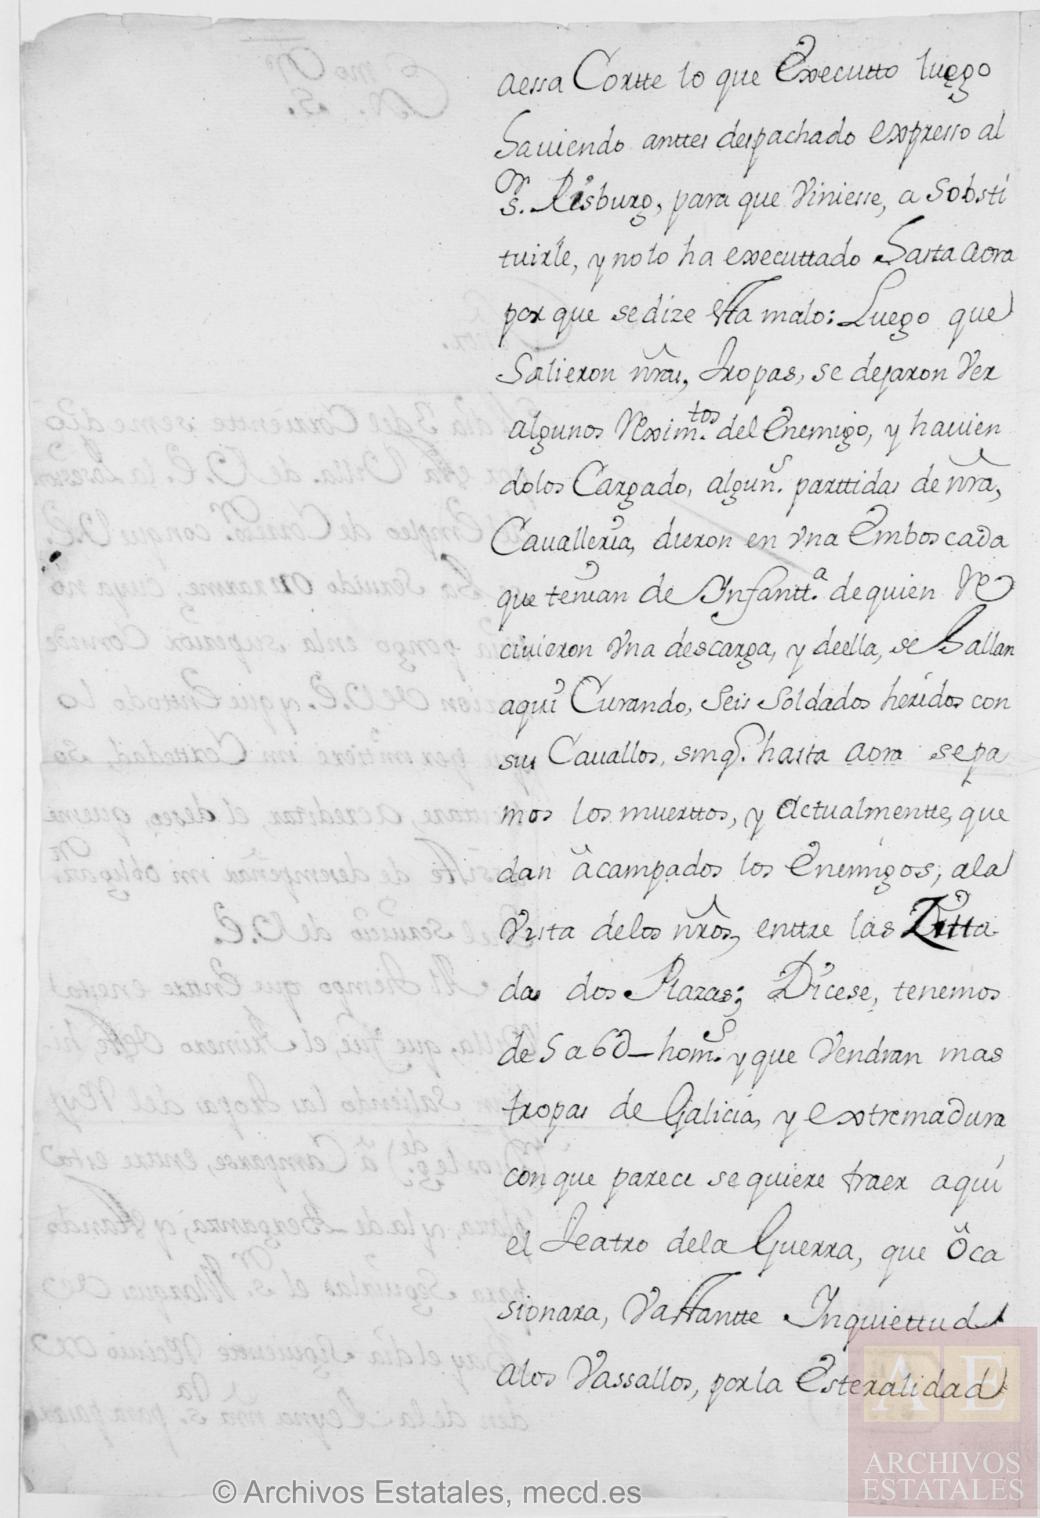 aessa Cortte lo que Executto luego
haviendo anttes despachado expresso al
Sr. Risburg, para que Viniesse, a Sobsti
tuirle, y nolo ha executtado hasta aora
por que sedize estta malo: Luego que
Salieron nras, Tropas, se dejaron Ver
algunos Reximtos. del Enemigo, y havien
dolos Cargado, alguns. parttidas de nra,
Cavalleria, dieron en Vna Emboscada
que tenian de Infantta. dequien Re
civieron Vna descarga, y deella, se hallan
aqui Curando, Seis Soldados heridos con
sus Cavallos, sinq. hasta aora sepa
mos los muerttos, y actualmentte, que
dan acampados los Enemigos, ala
Vista delos nros, enttre las Zitta
das dos Plazas; Dicese, tenemos
de 5 a 6U homs. y que Vendran mas
tropas de Galicia, y extremadura
con que parece se quiere traer aqui
el Teatro dela Guerra, que oca
sionara, Vasttantte Inquiettud
alos Vassallos, porla Esteralidad
© Archivos Estatales, mecd.es
AE
ARCHIVOS
ESTATALES